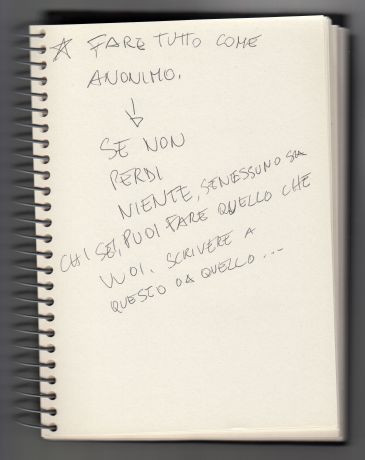 ☆ FARE TUTTO COME
ANONIMO.
↓
SE NON
PERDI
NIENTE, SE NESSUNO SA
CHI SEI, PUOI FARE QUELLO CHE
VUOI. SCRIVERE A
QUESTO O A QUELLO...